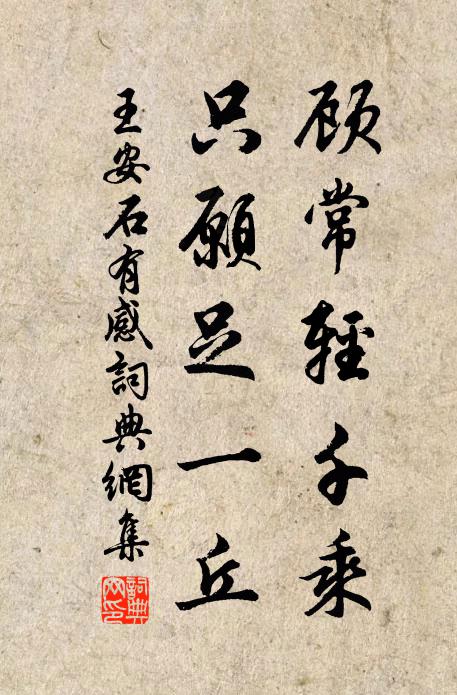 顾常輕千乘
只願足一丘
王安石有感詞典網集
詞典网印